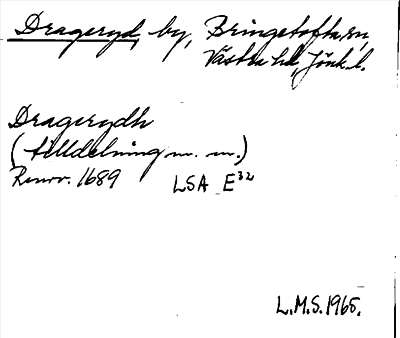 Drageryd, by, Bringetofta sn,
Västra hd, Jönk. l.
Dragerydh
(tilldelning m. m.)
Renov. 1689 LSA E³²
L.M.S. 1965.